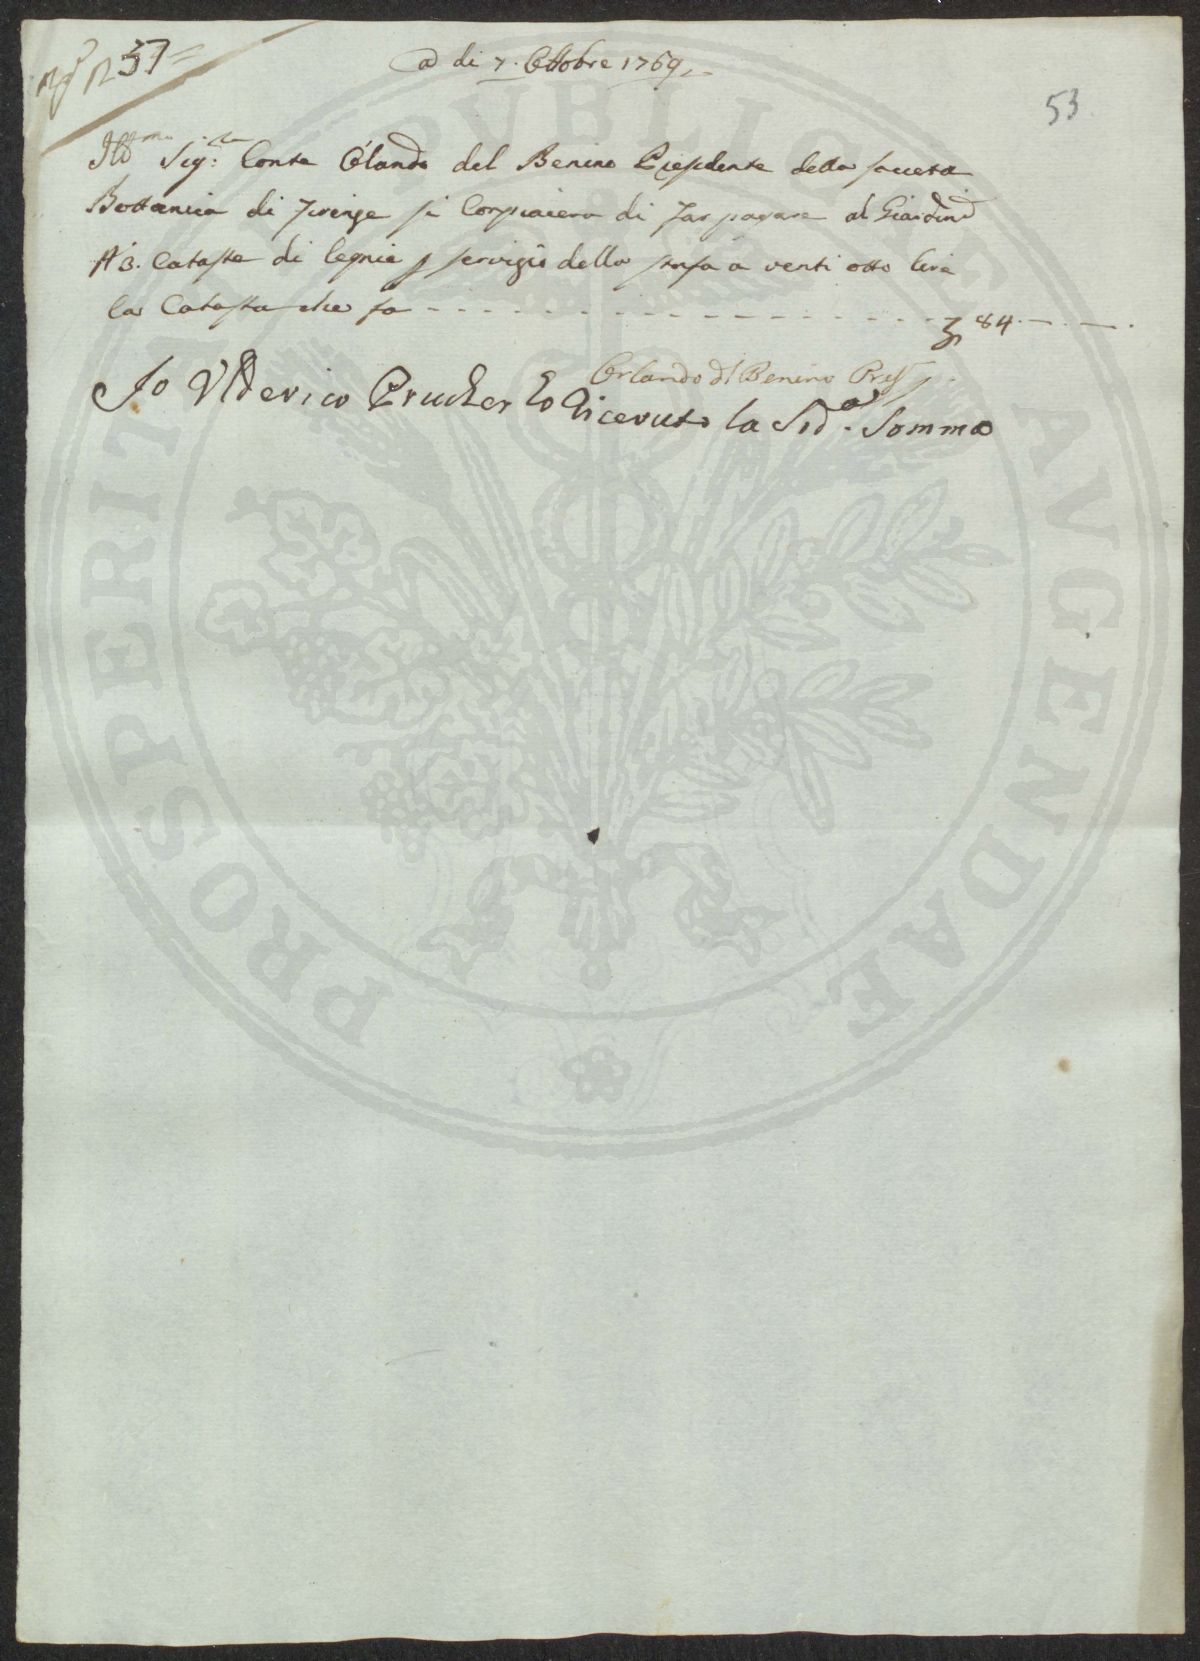 N 57=
A di 7. Ottobre 1769.
53
Ill:mo Sig:re Conte Olando del Benino Presidente della Soccieta
Bottanica di Firenze si Conpiacera di far pagare al Giardin
N 3. Cataste di legnie p servizio della stufa a venti otto lire
la Catasta che fa - - - 84. - . - .
Orlando dl Benino Pres
Io Ulderico Prucher ho Riceuuto la Sud.a Somma
PROSPERITATI PVBLICAE AVGENDAE